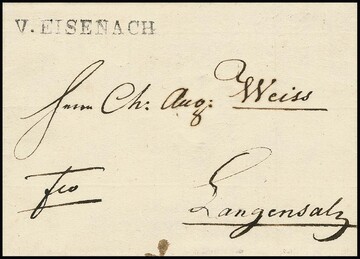 V. EISENACH
Herrn Ch: Aug: Weiss
fro
Langensalz